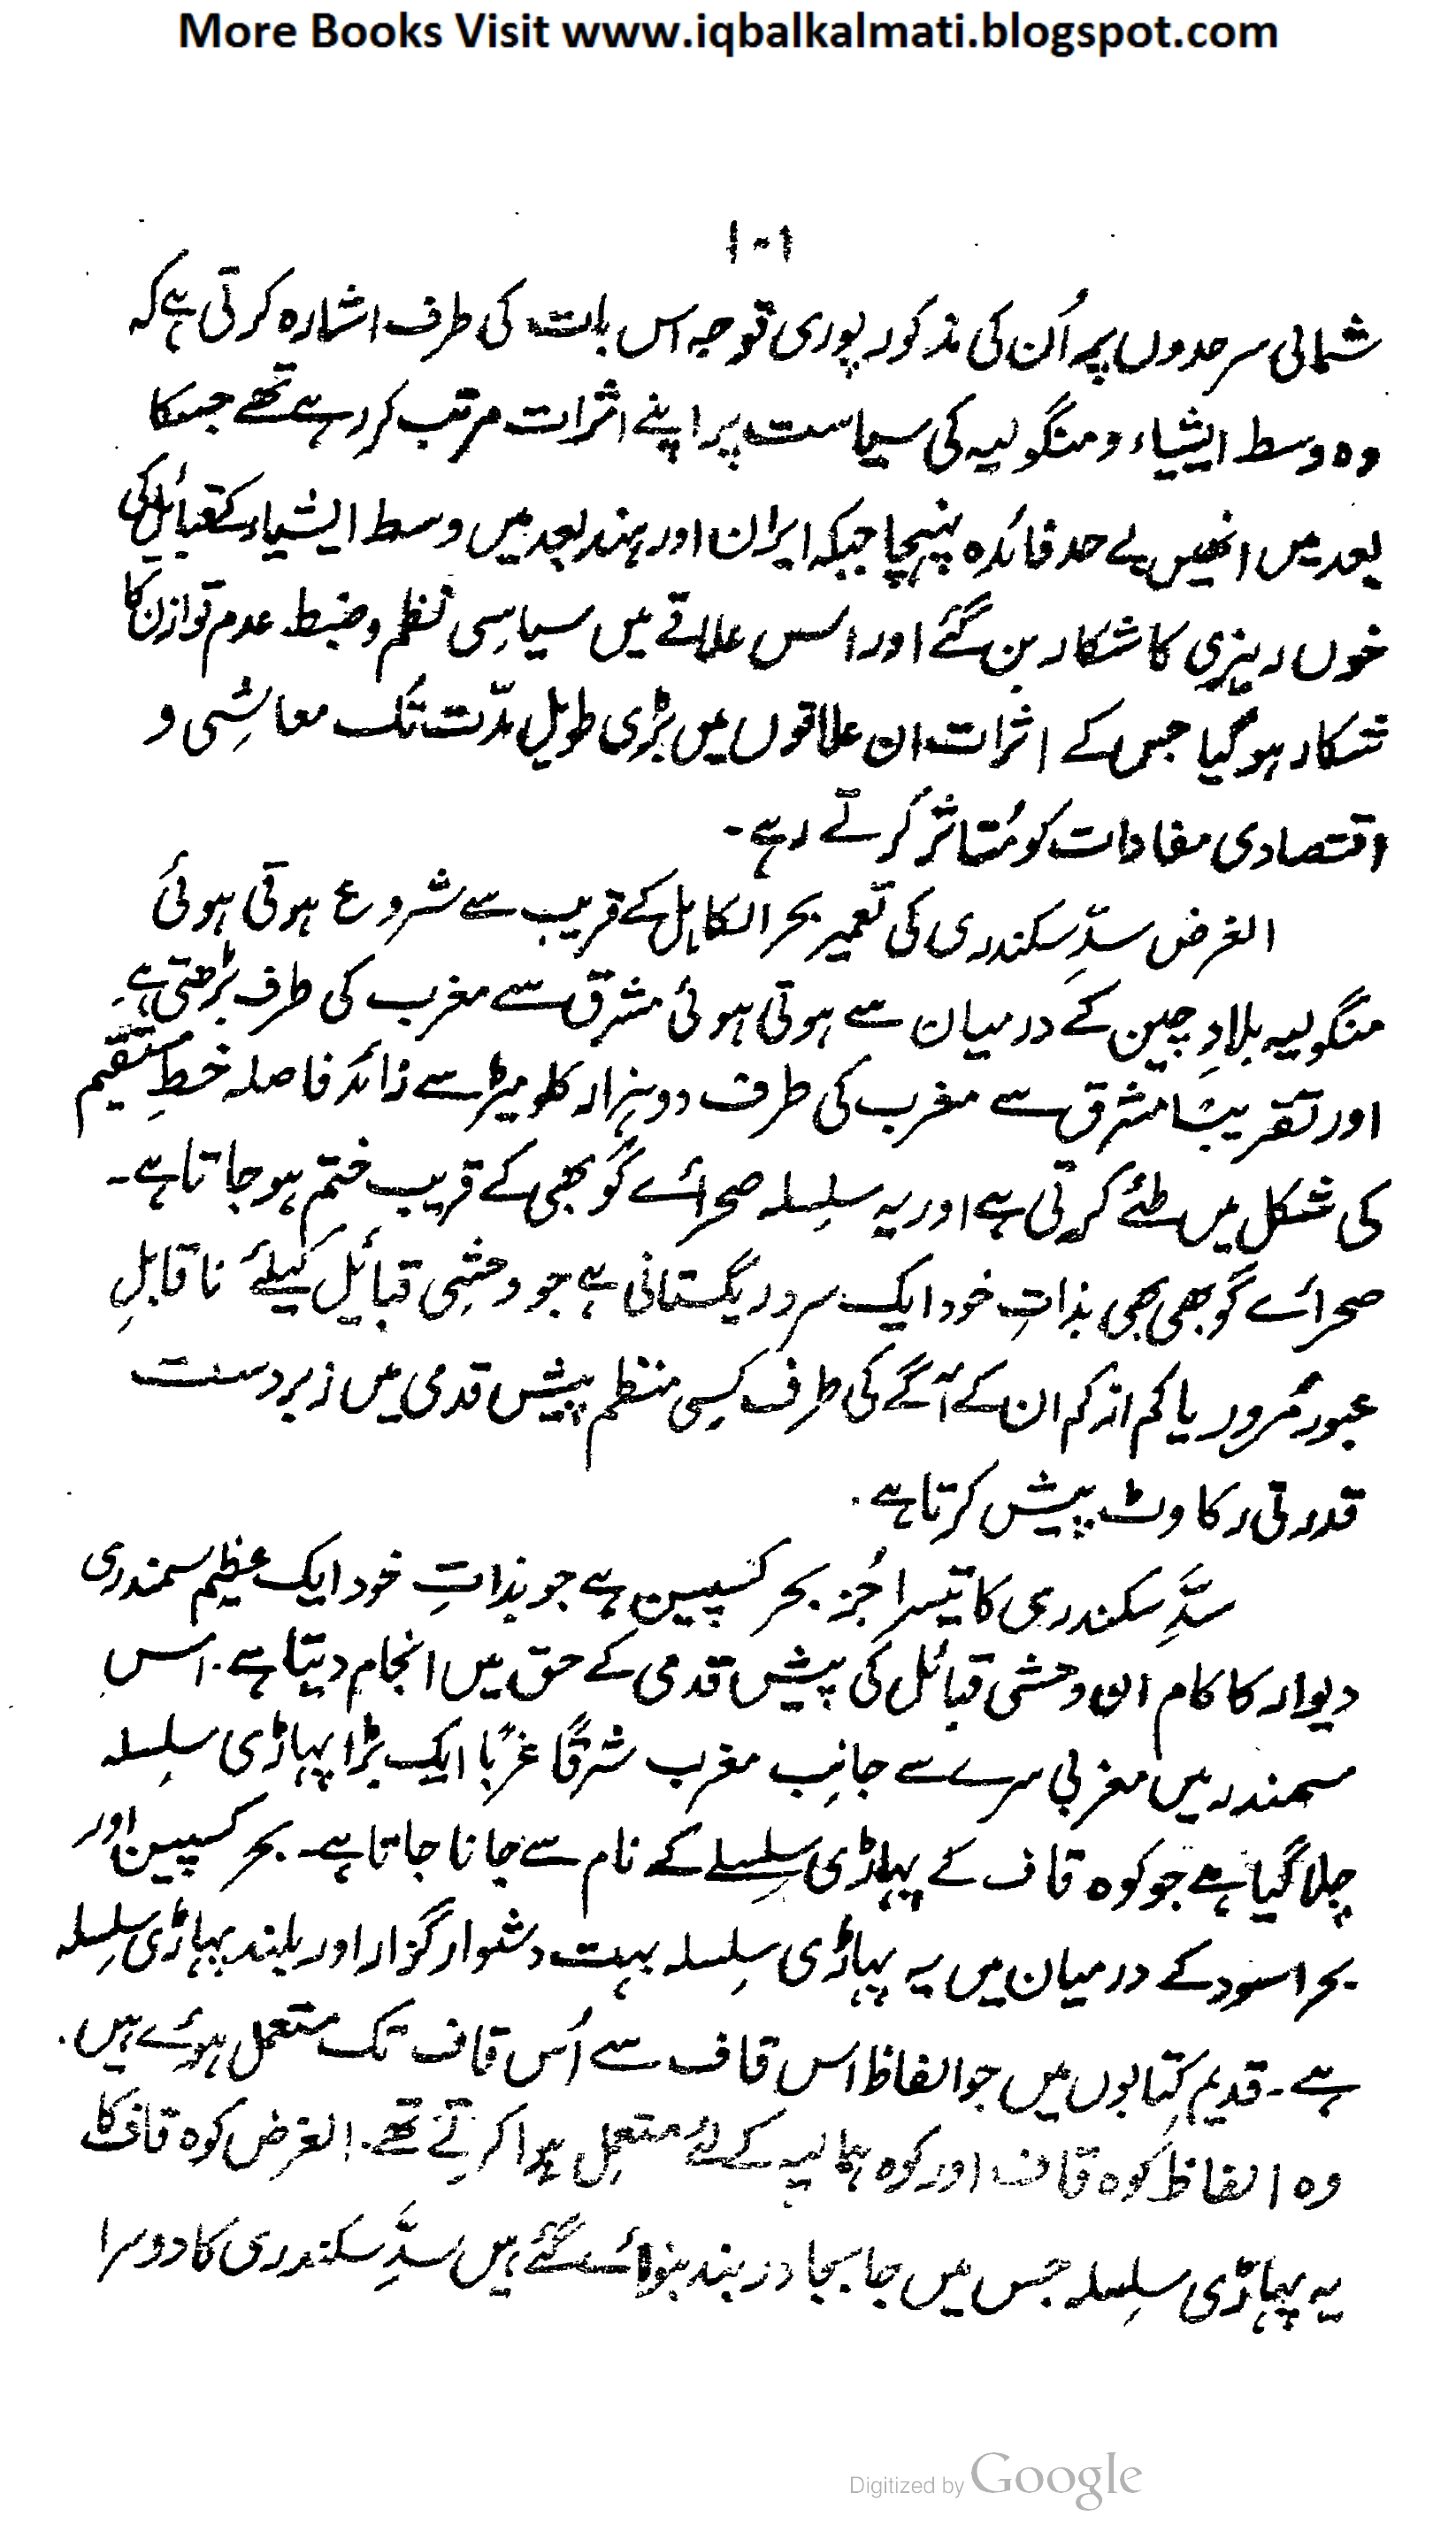 More Books Visit www.iqbalkalmati.blogspot.com
۱۰۱
شمالی سرحدوں پر اُن کی مذکور پوری توجہ اس بات کی طرف اشارہ کرتی ہے کہ
وہ وسط ایشیاء و منگولیہ کی سیاست پر اپنے اثرات مرتب کر رہے تھے جسکا
بعد میں انھیں بے حد فائدہ پہنچا جبکہ ایران اور ہند بعد میں وسط ایشیاء کے قبائل کی
خوں ریزی کا شکار بن گئے اور اس علاقے میں سیاسی نظم و ضبط عدم توازن کا
شکار ہو گیا جس کے اثرات ان علاقوں میں بڑی طویل مدّت تک معاشی و
اقتصادی مفادات کو مُتاثر کرتے رہے۔
الغرض سدِّ سکندری کی تعمیر بحر الکاہل کے قریب سے شروع ہوتی ہوئی
منگولیہ بلادِ چین کے درمیان سے ہوتی ہوئی مشرق سے مغرب کی طرف بڑھتی ہے۔
اور تقریبًا مشرق سے مغرب کی طرف دو ہزار کلو میٹر سے زائد فاصلہ خطِ مستقیم
کی شکل میں طئے کرتی ہے اور یہ سلسلہ صحرائے گوبھی کے قریب ختم ہو جاتا ہے۔
صحرائے گوبھی بھی بذاتِ خود ایک سرد ریگستانی ہے جو وحشی قبائل کیلئے ناقابلِ
عبور مُرور یا کم از کم ان کے آگے کی طرف کسی منظم پیش قدمی میں زبردست
قدرتی رکاوٹ پیش کرتا ہے۔
سدِّ سکندری کا تیسرا جُز بحر کسپین ہے جو بذاتِ خود ایک عظیم سمندری
دیوار کا کام ان وحشی قبائل کی پیش قدمی کے حق میں انجام دیتا ہے۔ اس
سمندر میں مغربی سرے سے جانب مغرب شرقًا غربًا ایک بڑا پہاڑی سلسلہ
چلا گیا ہے جو کوہ قاف کے پہاڑی سلسلے کے نام سے جانا جاتا ہے۔ بحر کسپین اور
بحر اسود کے درمیان میں یہ پہاڑی سلسلہ بہت دشوار گزار اور بلند پہاڑی سلسلہ
ہے۔ قدیم کتابوں میں جو الفاظ اس قاف سے اُس قاف تک متعمل ہوئے ہیں۔
وہ الفاظ کوہ قاف اور کوہ ہمالیہ کے لئے متعمل ہوا کرتے تھے۔ الغرض کوہ قاف کا
یہ پہاڑی سلسلہ جس میں جا بجا در بند بنوائے گئے ہیں سدِّ سکندری کا دوسرا
Digitized by Google